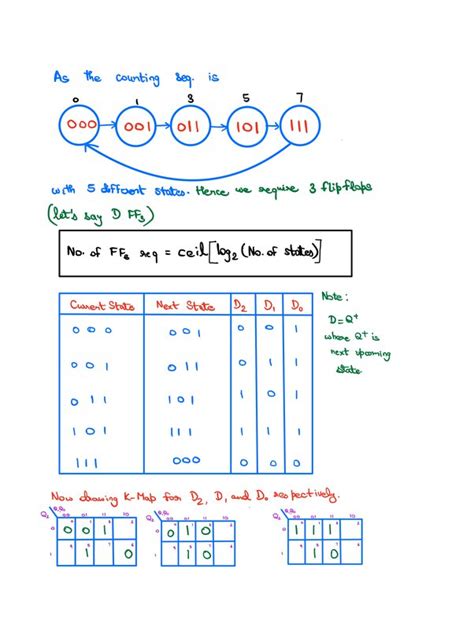 As the counting seq. is
0 1 3 5 7
000 001 011 101 111
with 5 different states. Hence we require 3 flipflops
(let's say D FFs)
No. of FFs req = ceil[log2 (No. of states)]
Current State Next State D2 D1 D0
0 0 0 0 0 1 0 0 1
0 0 1 0 1 1 0 1 1
0 1 1 1 0 1 1 0 1
1 0 1 1 1 1 1 1 1
1 1 1 000 0 0 0
Note:
D=Q+
where Q+ is
next upcoming
state
Now drawing K-Map for D2, D1 and D0 respectively.
Q2 Q1Q0 00 01 11 10
0 0 0 1
1 1 0
0 1 0
1 0
1 1 1
1 0